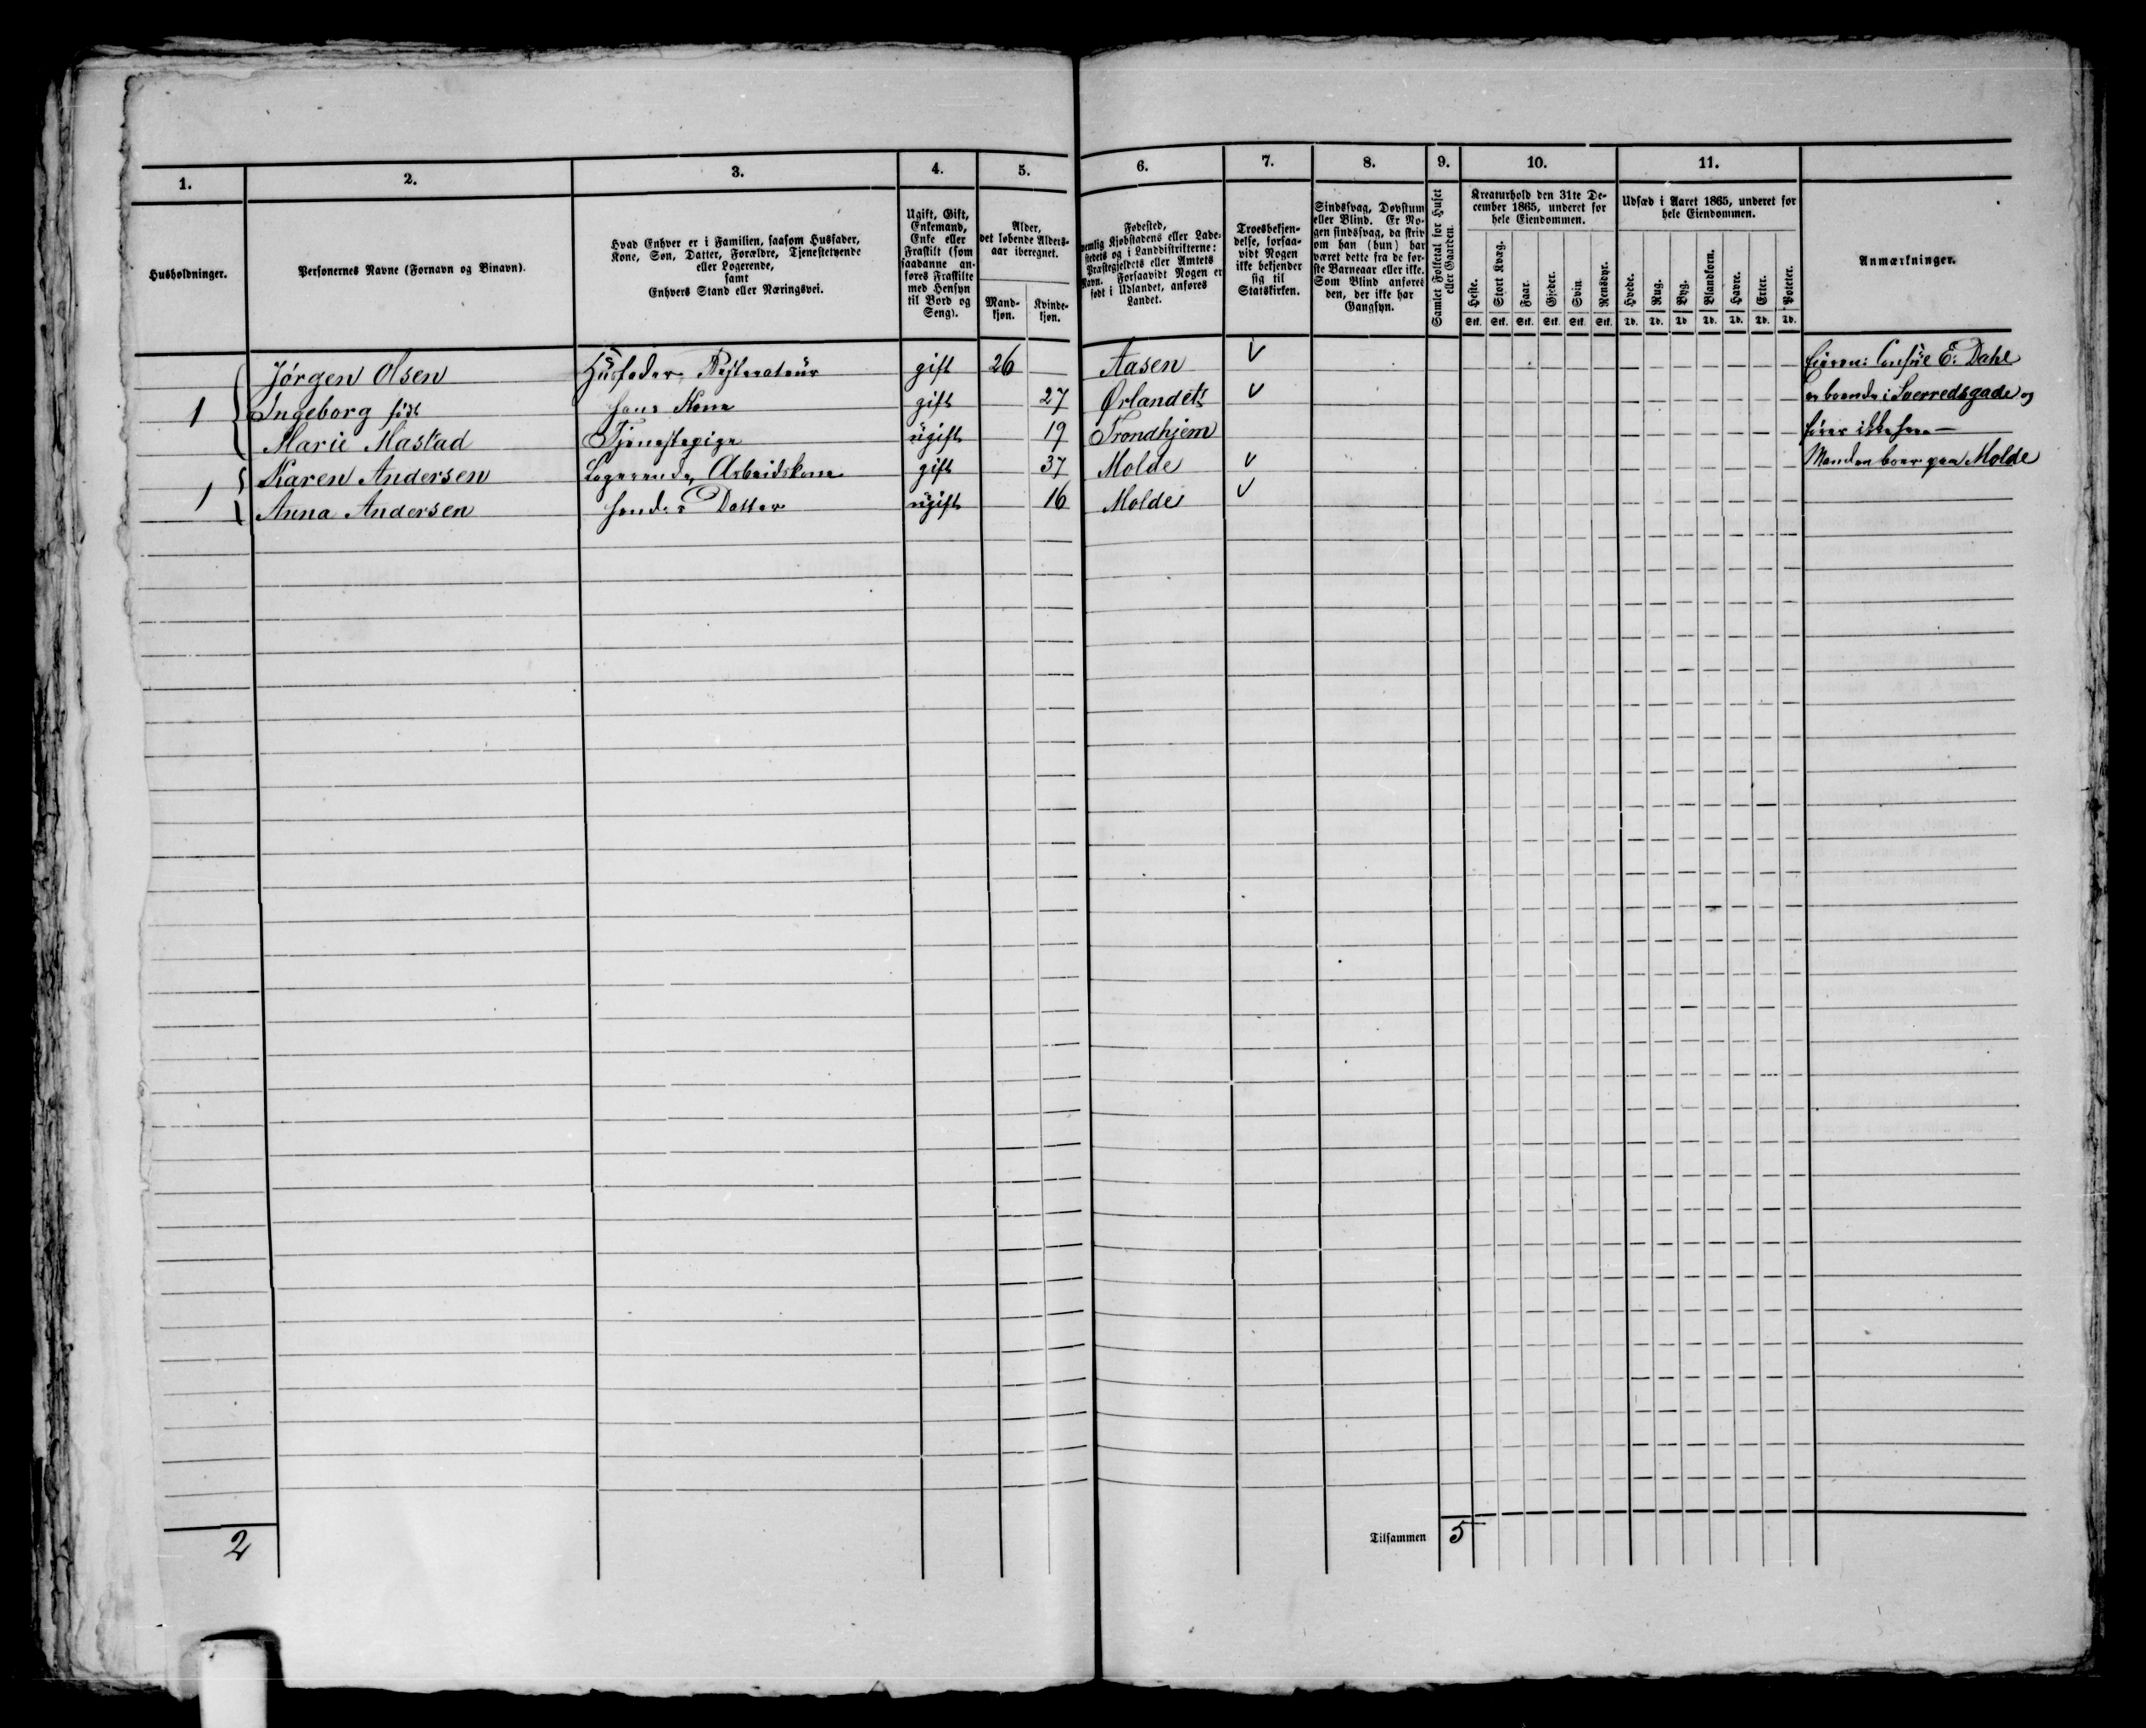 1. 2. 3. 4. 5. 6. 7. 8. 9. 10. 11.
Husholdninger.
Personernes Navne (Fornavn og Binavn).
Hvad Enhver er i Familien, saasom Husfader,
Kone, Søn, Datter, Forældre, Tjenestetyende
eller Logerende,
samt
Enhvers Stand eller Næringsvei.
Ugift, Gift,
Enkemand,
Enke eller
Fraskilt (som
saadanne an-
føres Fraskilte
med Hensyn
til Bord og
Seng).
Alder,
det løbende Alders-
aar iberegnet.
Mand-
kjøn.
Kvinde-
kjøn.
Fødested,
nemlig Kjøbstadens eller Lade-
stedets og i Landdistrikterne:
Præstegjeldets eller Amtets
Navn. Forsaavidt Nogen er
født i Udlandet, anføres
Landet.
Troesbekjen-
delse, forsaa-
vidt Nogen
ikke bekjender
sig til
Statskirken.
Sindssvag, Døvstum
eller Blind. Er No-
gen sindssvag, da skriv
om han (hun) har
været dette fra de før-
ste Barneaar eller ikke.
Som Blind anføres
den, der ikke har
Gangsyn.
Samlet Folketal for Huset
eller Gaarden.
Kreaturhold den 31te De-
cember 1865, underet for
hele Eiendommen.
Heste. Stort Kvæg. Faar. Gjeder. Svin. Rensdyr.
Stk. Stk. Stk. Stk. Stk. Stk.
Udsæd i Aaret 1865, underet for
hele Eiendommen.
Hvede. Rug. Byg. Blandkorn. Havre. Erter. Poteter.
Td. Td. Td Td. Td. Td. Td.
Anmærkninger.
Jørgen Olsen Husfader, gift 26 Aasen E: Dahl
1 Ingeborg hans Kone gift 27 Ørlandet er boende i og
Marie Mastad Tjenestepige ugift 19 Trondhjem ikke
Karen Andersen Logerende, Arbeidskone gift 37 Molde Manden boer paa Molde
1 Anna Andersen hendes Datter ugift 16 Molde
2 Tilsammen 5